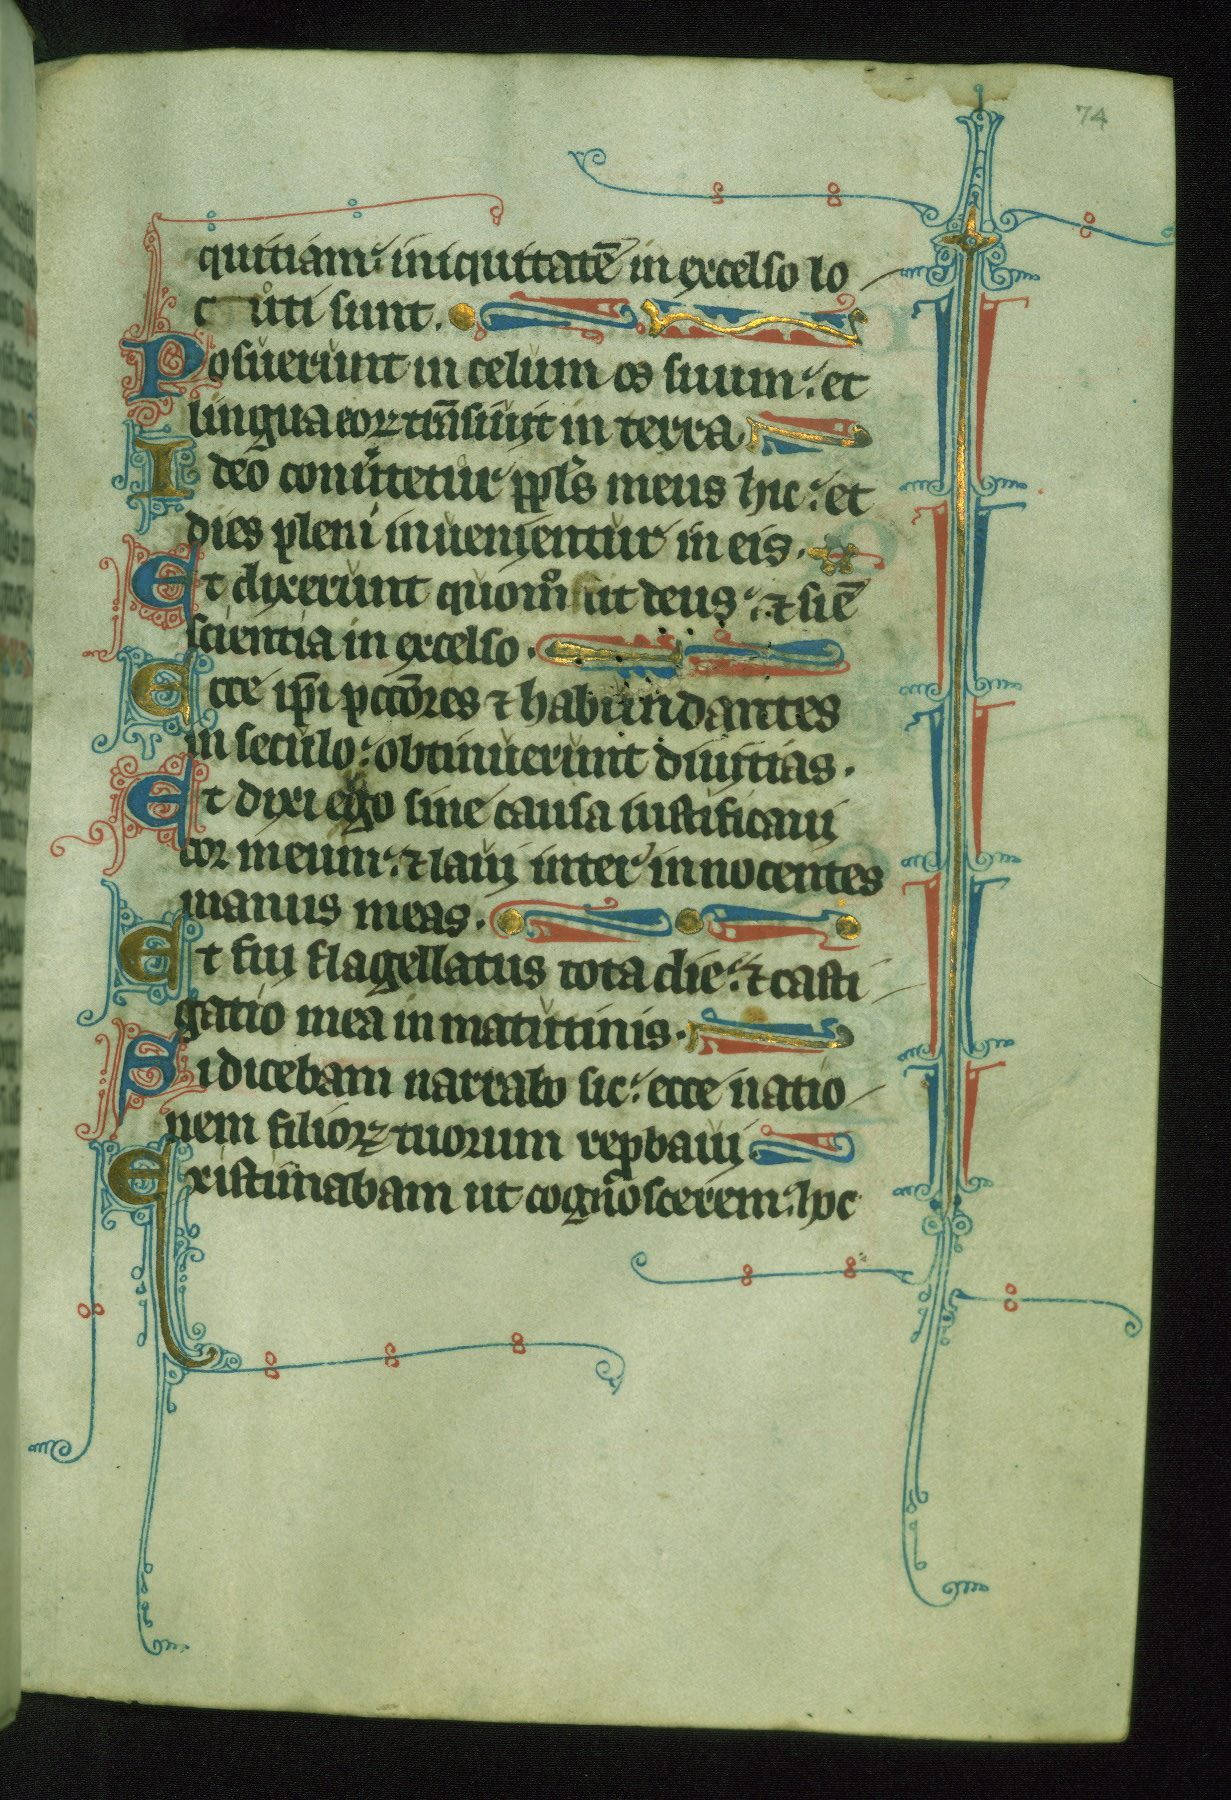 74
quitiam: iniquitatē in excelso lo
c uti sunt.
Posuerunt in celum os suum: et
lingua eoꝝ trāsiuit in terra
Ideo conuͥtetur ppl's meus hic: et
dies pleni inuenientur in eis.
Et dixerunt quomͦ scit deus: ⁊ si ē
scientia in excelso.
Ecce ip̄i pccōres ⁊ habundantes
in seculo: obtinuerunt diuitias.
Et dixi ego sine causa iustificaui
cor meum: ⁊ laui inter innocentes
manus meas.
Et fui flagellatus tota die: ⁊ casti
gatio mea in matutinis.
Si dicebam narrabo sic: ecce natio
nem filioꝝ tuorum rep̱baui
Existimabam ut cognoscerem: hoc